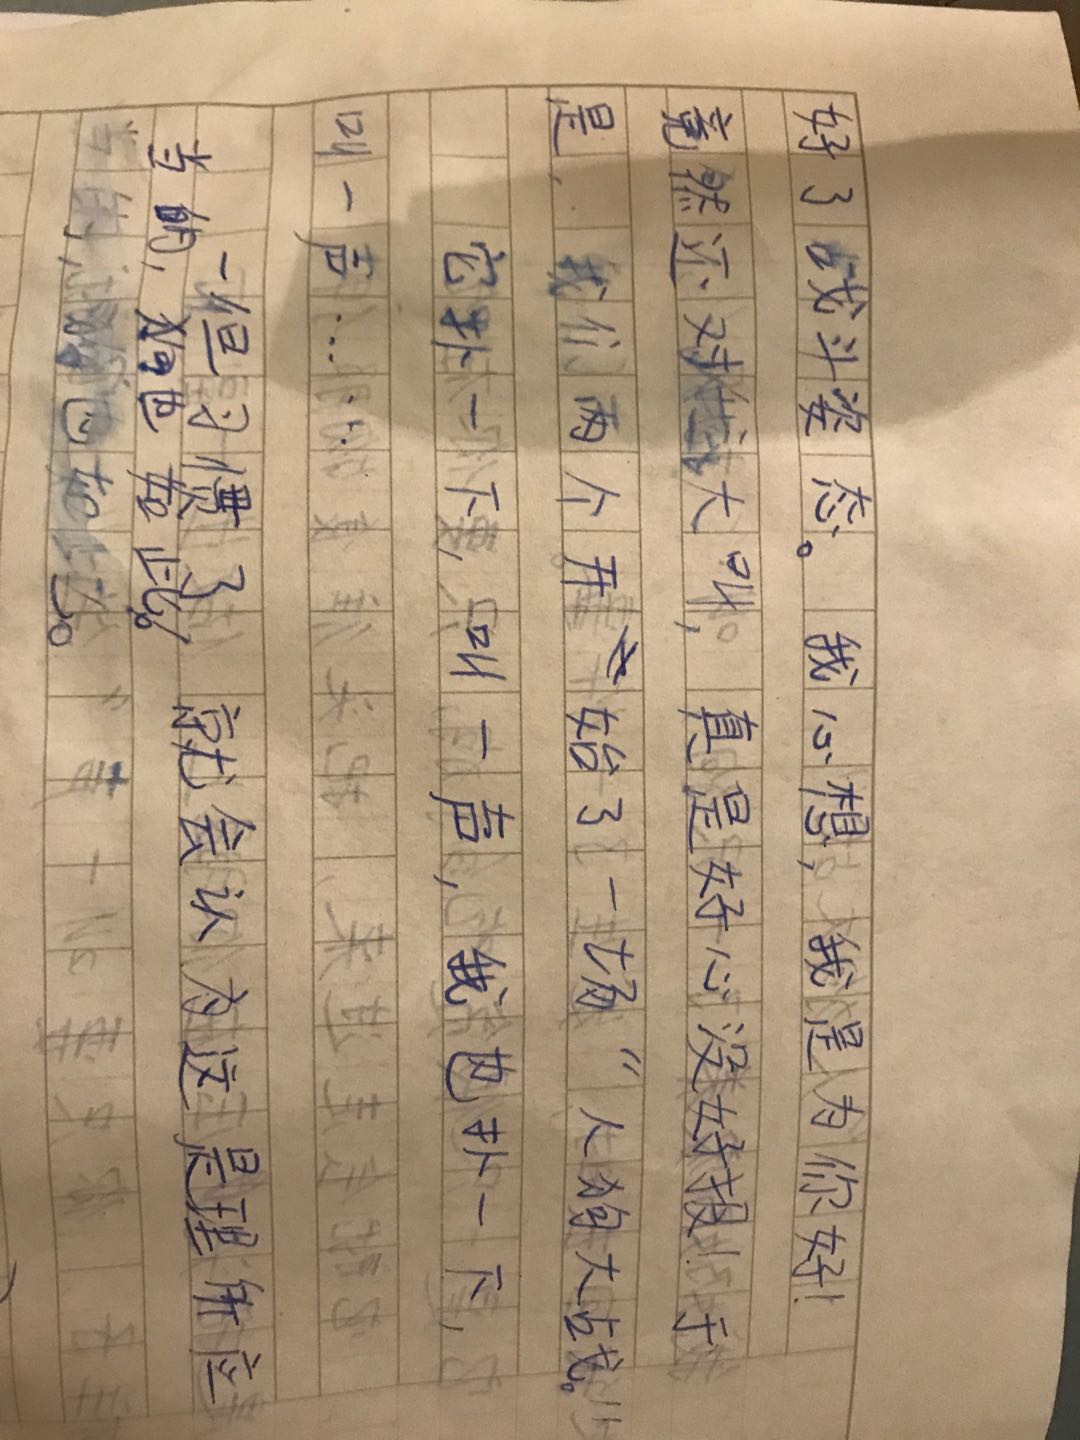 好了战斗姿态。我心想，我是为你好！
竟然还对我大叫，真是好心没好报！于
是，我们两个开始了一场“人狗大战。
它扑一下，叫一声，我也扑一下，
叫一声……
一但习惯了，就会认为这是理所应
当的，狗也如此。